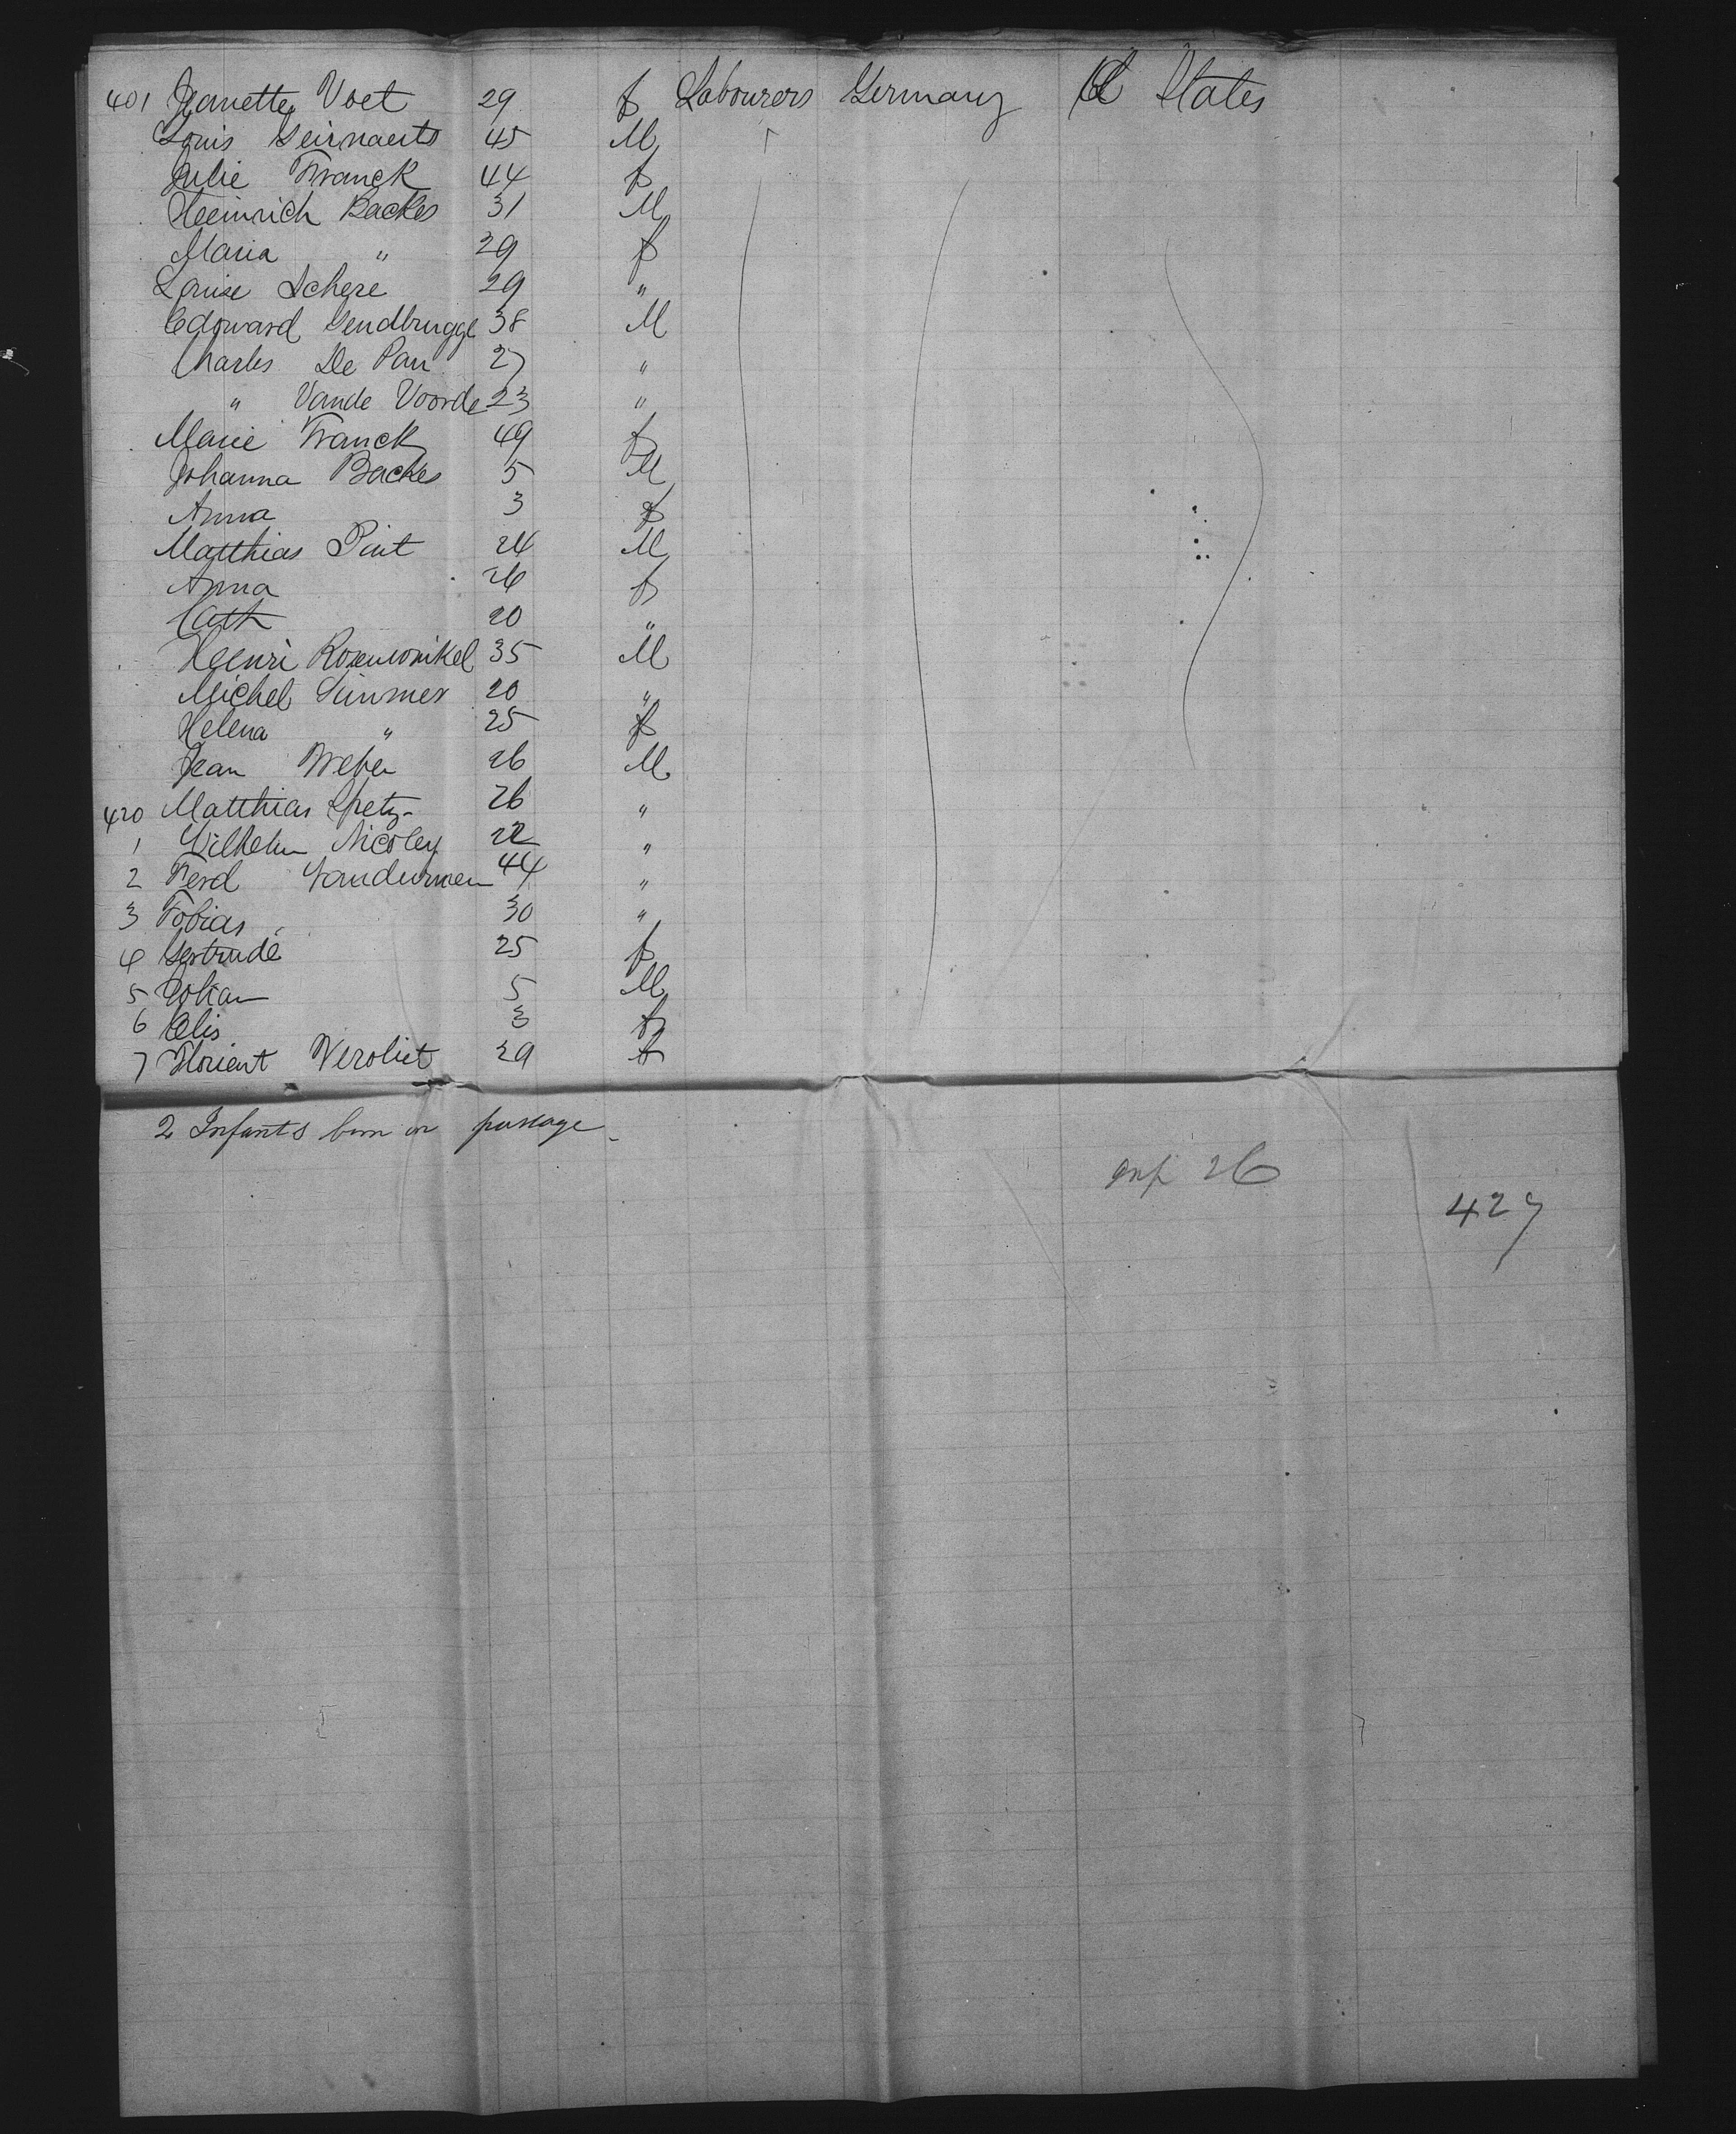 401 Jeanette Voet 29 f Labourers Germany U States
Louis Geirnaerts 45 M
Julie Franck 44 f
Heinrich Backes 31 M
Maria " 29 f
Louise Schere 29 "
Edouard Gendbrugge 38 M
Charles De Pau 27 "
" Vande Voorde 23 "
Marie Franck 49 f
Johanna Backes 5 M
Anna 3 f
Matthias Pint 24 M
Anna 26 f
Cath 20 "
Henri Rosenwinkel 35 M
Michel Simmer 20 "
Helena " 25 f
Jean Weber 26 M
420 Matthias Spetz 26 "
1 Wilhelm Nicoley 22 "
2 Ferd 44 "
3 Tobias 30 "
4 Gertrude 25 f
5 Johan 5 M
6 Elis 3 f
7 Florient Verobiet 29 f
2 Infants born on passage
inf 26
427